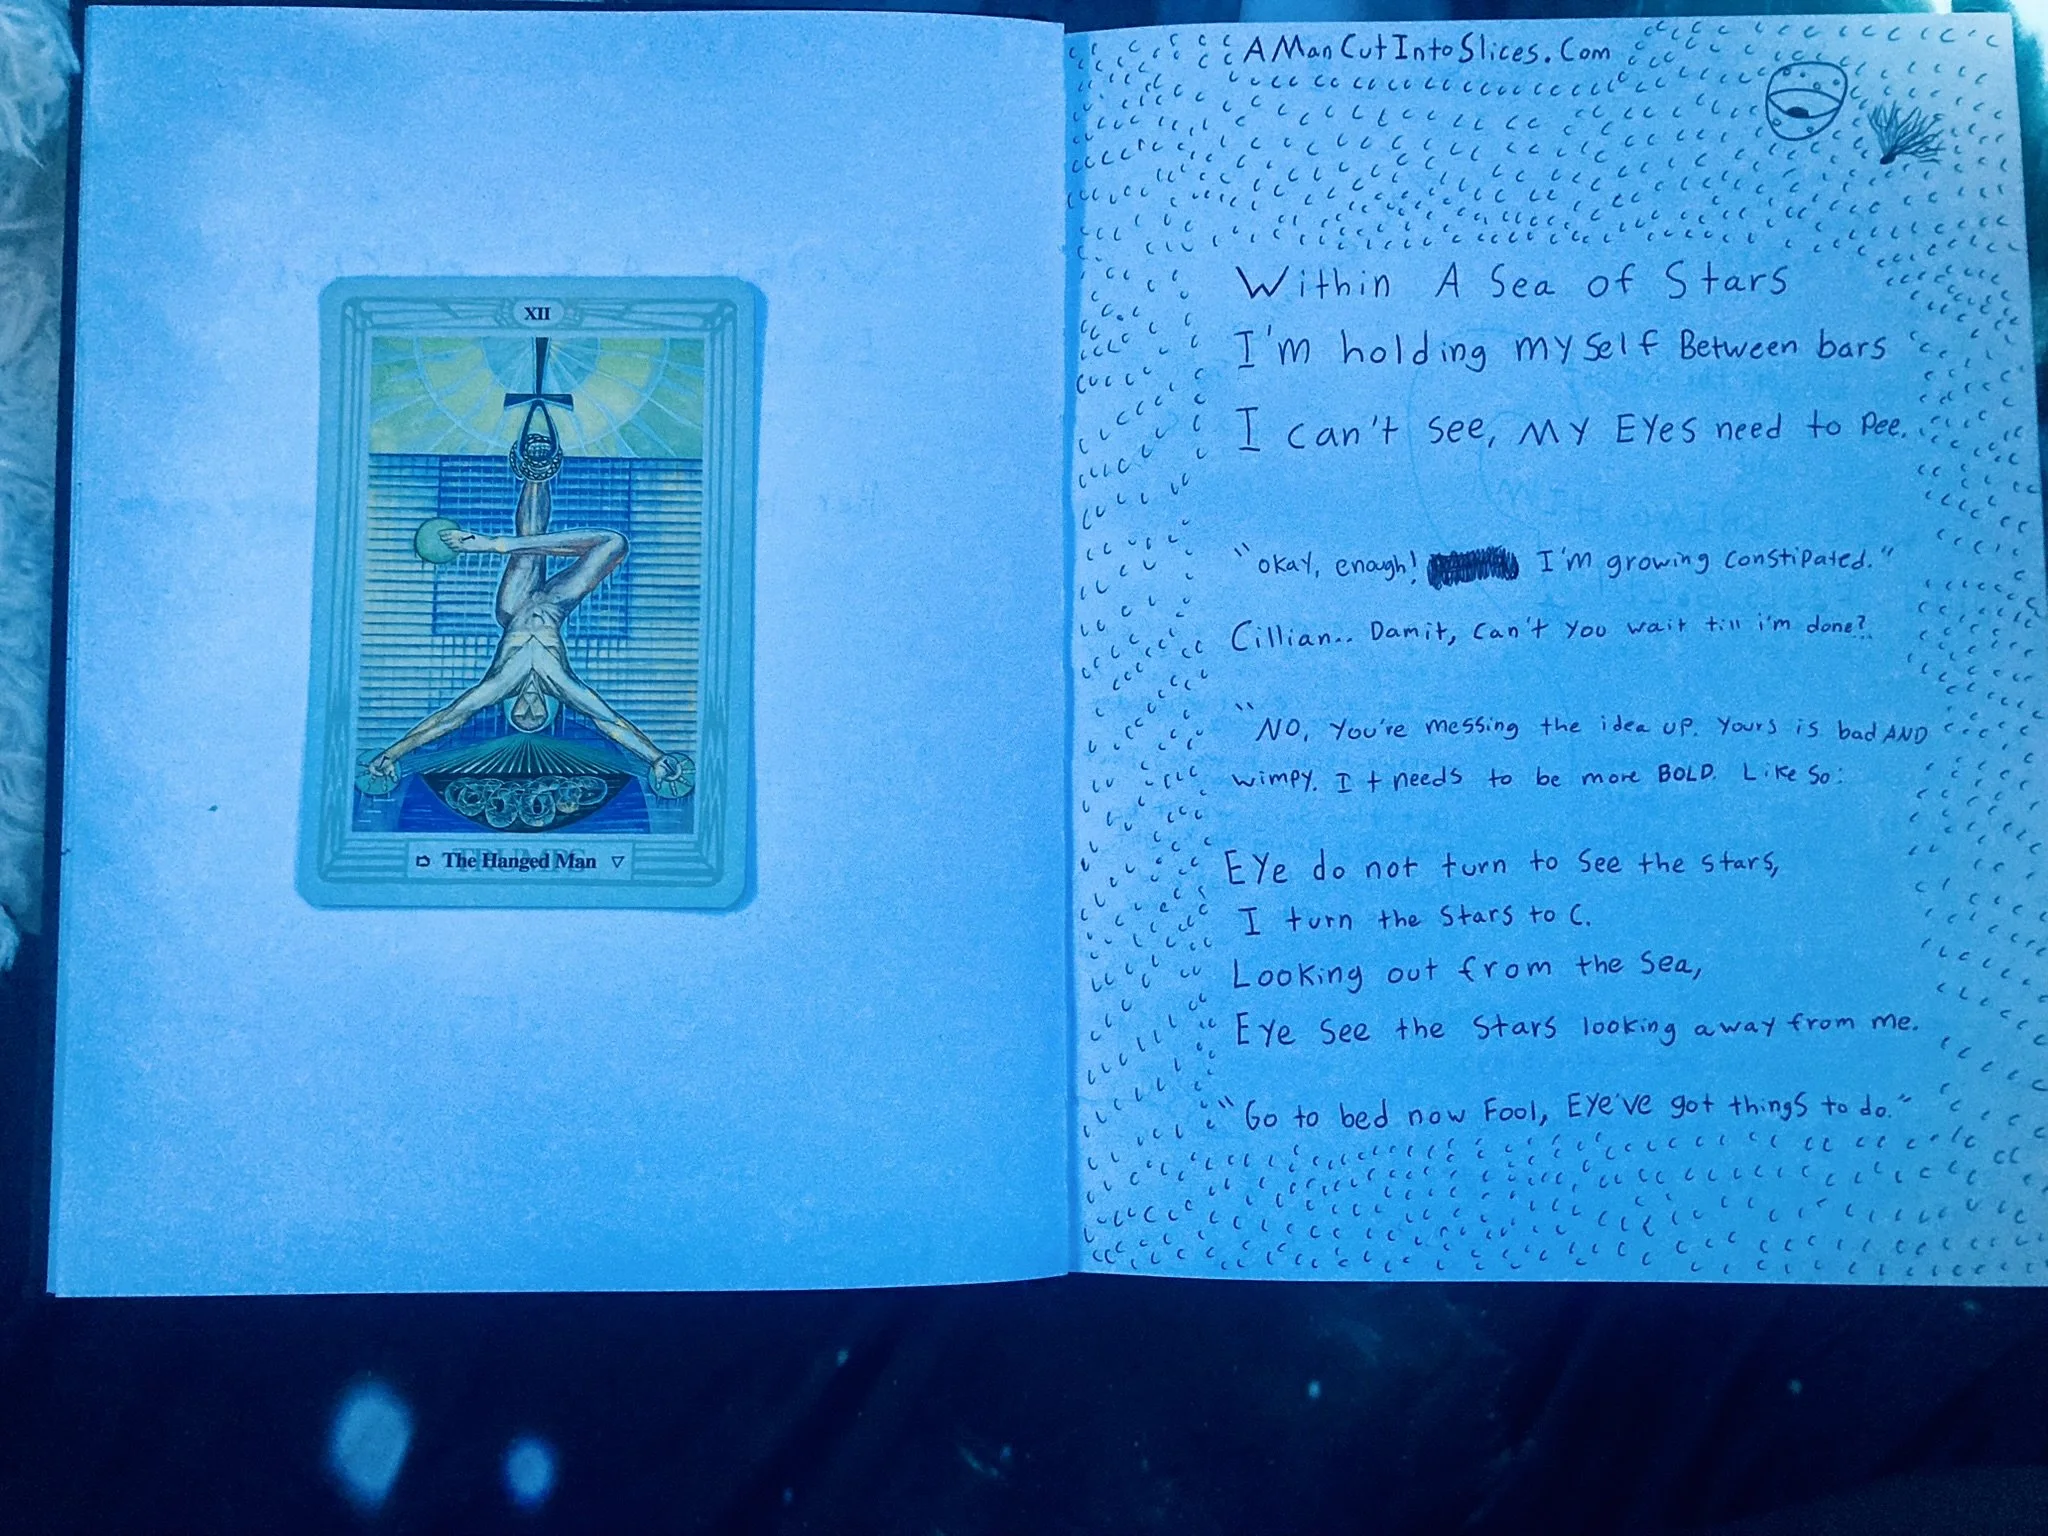 XII
The Hanged Man
AManCutIntoSlices.Com
Within A Sea of Stars
I'm holding myself Between bars
I can't see, My EYes need to Pee.
"okay, enough! I'm growing constipated."
Cillian.. Damit, can't you wait till i'm done?
"NO, You're messing the idea up. Yours is bad AND
wimpy. It needs to be more BOLD. Like So:
EYe do not turn to see the stars,
I turn the stars to C.
Looking out from the sea,
EYe see the stars looking away from me.
"Go to bed now Fool, EYe've got things to do."